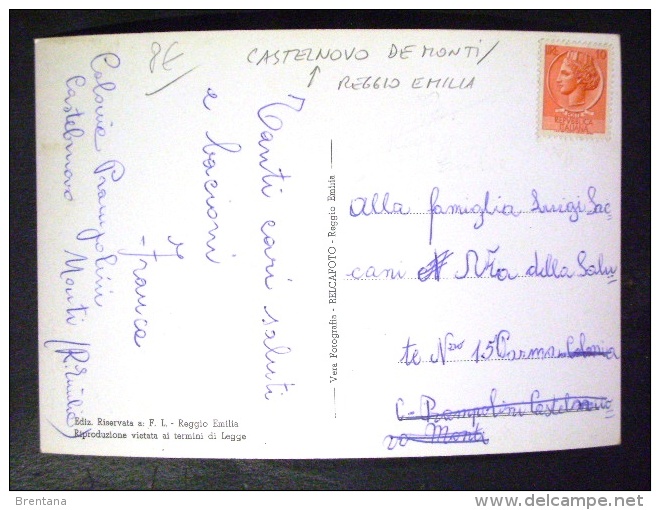 8€/
CASTELNOVO DE MONTI/
REGGIO EMILIA
Tanti cari saluti
e bacioni
Franca
Colonia Prampolini
Castelnovo Monti (R. Emilia)
Ediz. Riservata a: F. L. - Reggio Emilia
Riproduzione vietata ai termini di Legge
Vera Fotografia - RELCAFOTO - Reggio Emilia
Alla famiglia Luigi Sac
cani Via della Salu
te Nro 15 Parma Colonia
C- Prampolini Castelnuo
vo Monti
Brentana
delcampe.net